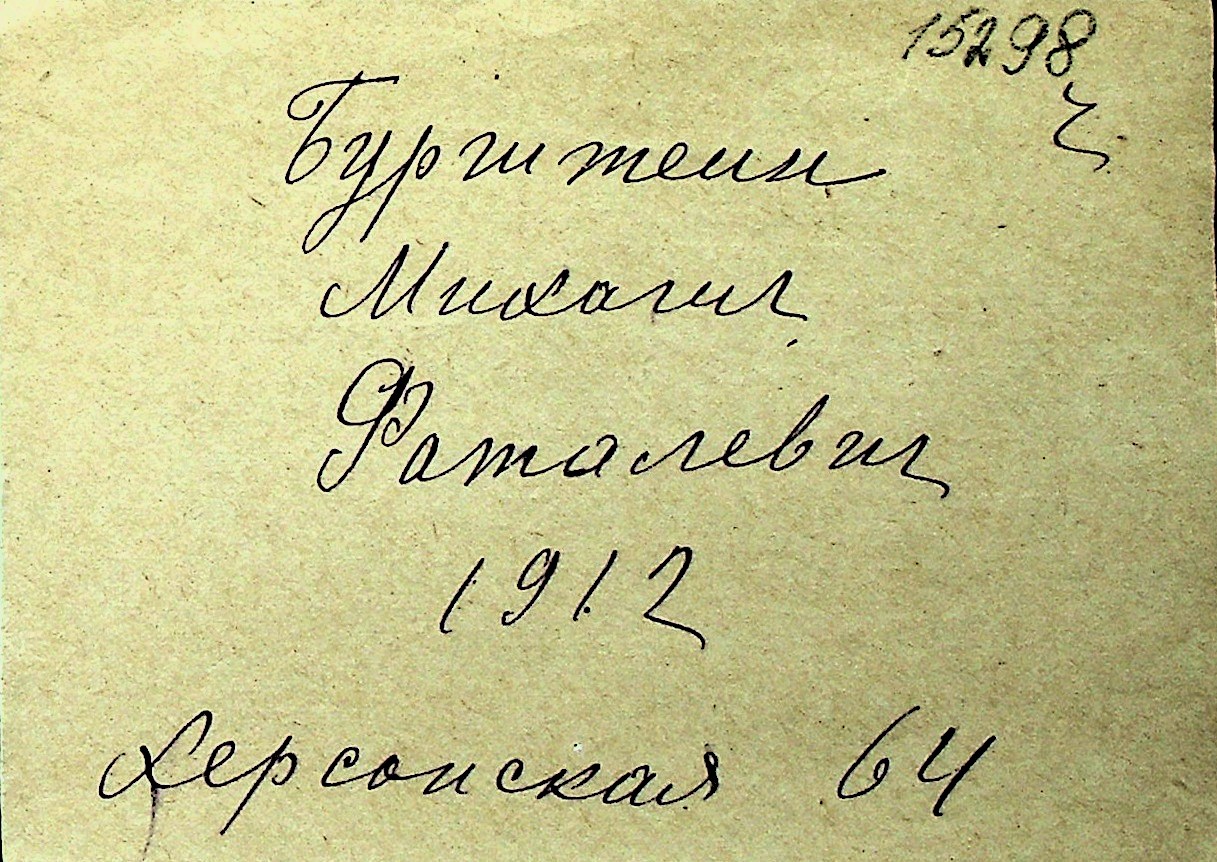 15298
2
Бургштеин
Михаил
Фаталевич
1912
Херсонская 64